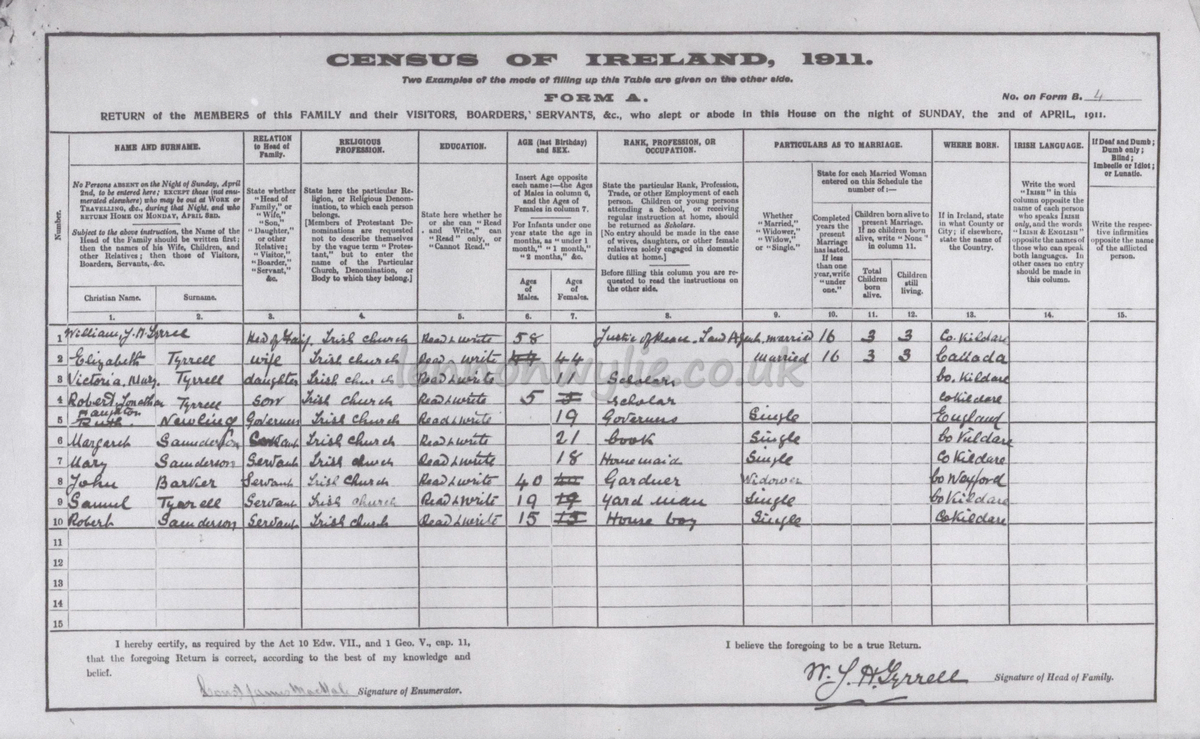 CENSUS OF IRELAND, 1911.
Two Examples of the mode of filling up this Table are given on the other side.
FORM A.
No. on Form B. 4
RETURN of the MEMBERS of this FAMILY and their VISITORS, BOARDERS, SERVANTS, &c., who slept or abode in this House on the night of SUNDAY, the 2nd of APRIL, 1911.
Number.
NAME AND SURNAME.
No Persons ABSENT on the Night of Sunday, April 2nd, to be entered here; EXCEPT those (not enumerated elsewhere) who may be out at WORK or TRAVELLING, &c., during that Night, and who RETURN HOME ON MONDAY, APRIL 3RD.
Subject to the above instruction, the Name of the Head of the Family should be written first; then the names of his Wife, Children, and other Relatives; then those of Visitors, Boarders, Servants, &c.
Christian Name. Surname.
RELATION to Head of Family.
State whether "Head of Family," or "Wife," "Son," "Daughter," or other Relative; "Visitor," "Boarder," "Servant," &c.
RELIGIOUS PROFESSION.
State here the particular Religion, or Religious Denomination, to which each person belongs.
[Members of Protestant Denominations are requested not to describe themselves by the vague term "Protestant," but to enter the name of the Particular Church, Denomination, or Body to which they belong.]
EDUCATION.
State here whether he or she can "Read and Write," can "Read" only, or "Cannot Read."
AGE (last Birthday) and SEX.
Insert Age opposite each name:—the Ages of Males in column 6, and the Ages of Females in column 7.
For Infants under one year state the age in months, as "under 1 month," "1 month," "2 months," &c.
Ages of Males. Ages of Females.
RANK, PROFESSION, OR OCCUPATION.
State the particular Rank, Profession, Trade, or other Employment of each person. Children or young persons attending a School, or receiving regular instruction at home, should be returned as Scholars.
[No entry should be made in the case of wives, daughters, or other female relatives solely engaged in domestic duties at home.]
Before filling this column you are requested to read the instructions on the other side.
PARTICULARS AS TO MARRIAGE.
Whether "Married," "Widower," "Widow," or "Single."
State for each Married Woman entered on this Schedule the number of:—
Completed years the present Marriage has lasted. If less than one year, write "under one."
Children born alive to present Marriage. If no children born alive, write "None" in column 11.
Total Children born alive. Children still living.
WHERE BORN.
If in Ireland, state in what County or City; if elsewhere, state the name of the Country.
IRISH LANGUAGE.
Write the word "IRISH" in this column opposite the name of each person who speaks IRISH only, and the words "IRISH & ENGLISH" opposite the names of those who can speak both languages. In other cases no entry should be made in this column.
If Deaf and Dumb; Dumb only; Blind; Imbecile or Idiot; or Lunatic.
Write the respective infirmities opposite the name of the afflicted person.
1. 2. 3. 4. 5. 6. 7. 8. 9. 10. 11. 12. 13. 14. 15.
1 William J. H. Tyrrell Hed of Irish church Read & write 58 Justice of Peace. Land Agent married 16 3 3 Co. Kildare
2 Elizabeth Tyrrell wife Irish church Read & write 44 44 married 16 3 3 Canada
3 Victoria Mary Tyrrell daughter Irish church Read & write 11 Scholar Co. Kildare
4 Robert Jonathan Tyrrell son Irish church Read & write 5 5 scholar Co Kildare
Haughton
5 Ruth Newling Governess Irish Church Read & write 19 Governess Single England
6 Margaret Saunderson Irish Church Read & write 21 Cook Single Co Kildare
7 Mary Saunderson Servant Irish church Read & write 18 Housemaid Single Co Kildare
8 John Barker Servant Irish Church Read & write 40 40 Gardner Widower Co Wexford
9 Samuel Tyrrell Servant Irish church Read & write 19 19 Yard man Single Co Kildare
10 Robert Saunderson Servant Irish church Read & write 15 15 House boy Single Co Kildare
11
12
13
14
15
lennonwylie.co.uk
I hereby certify, as required by the Act 10 Edw. VII., and 1 Geo. V., cap. 11,
that the foregoing Return is correct, according to the best of my knowledge and
belief.
Const James Signature of Enumerator.
I believe the foregoing to be a true Return.
W. J. H. Tyrrell Signature of Head of Family.